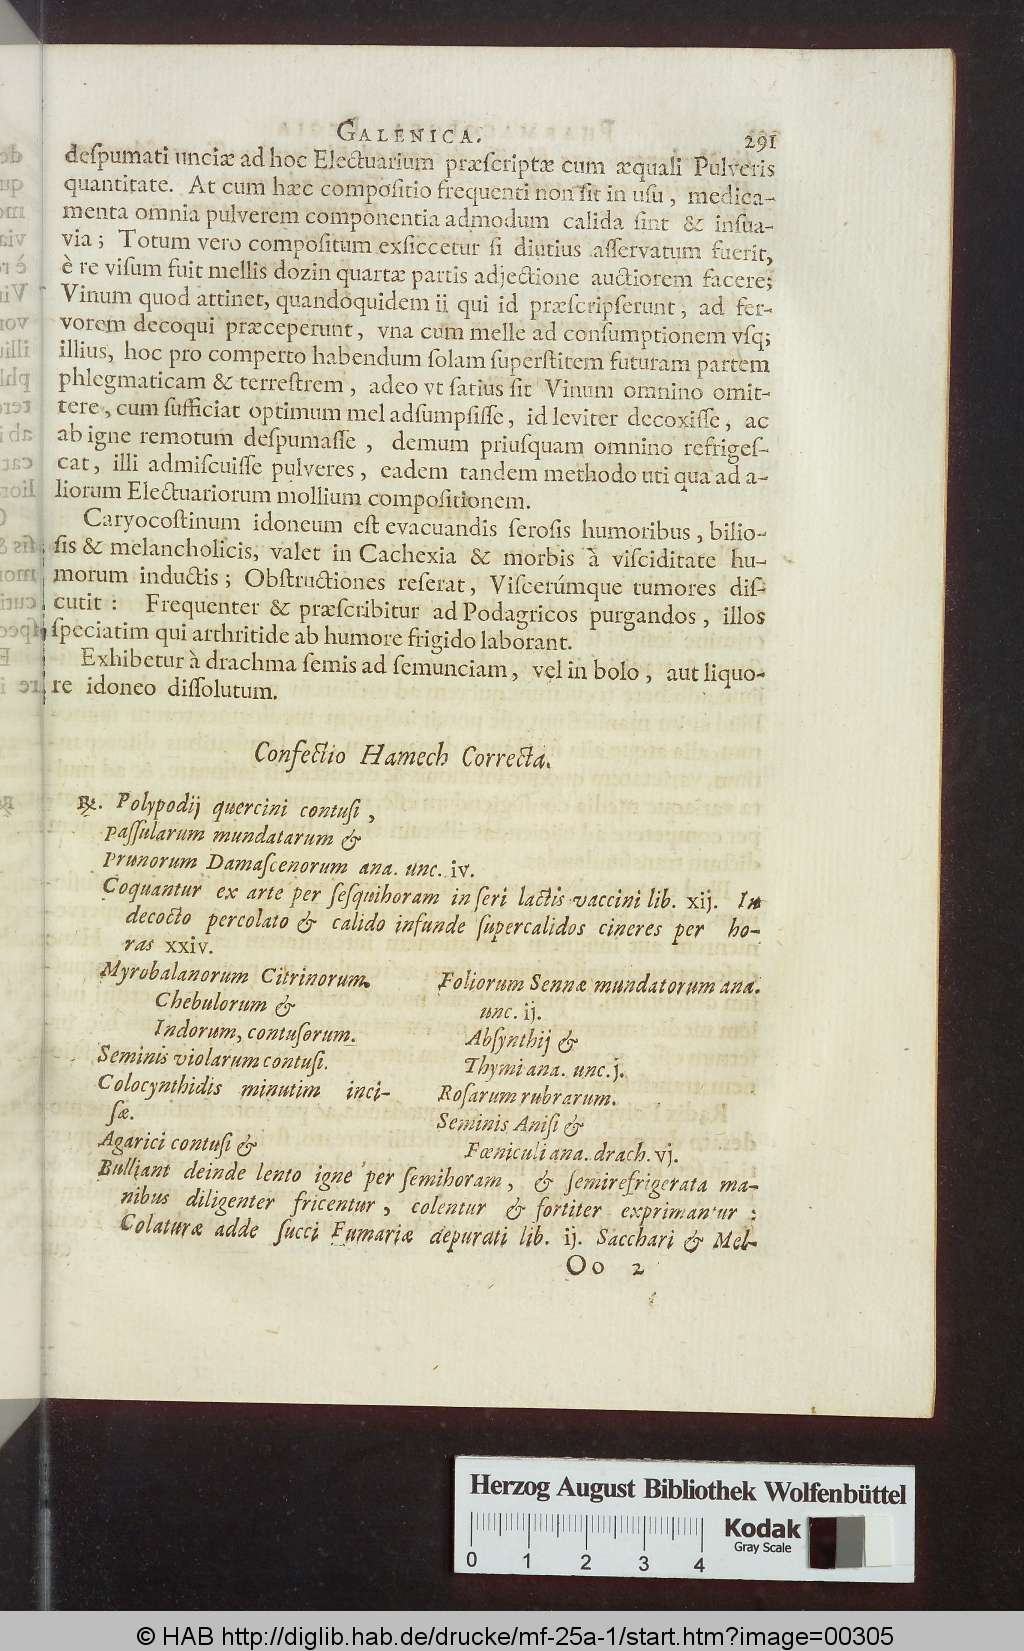 GALENICA. 291
deſpumati unciæ ad hoc Electuarium præſcriptæ cum æquali Pulveris
quantitate. At cum hæc compoſitio frequenti non ſit in uſu, medica-
menta omnia pulverem componentia admodum calida ſint & inſua-
via; Totum vero compoſitum exſiccetur ſi diutius aſſervatum fuerit,
è re viſum fuit mellis dozin quartæ partis adjectione auctiorem facere;
Vinum quod attinet, quandoquidem ii qui id præſcripſerunt, ad fer-
vorem decoqui præceperunt, vna cum melle ad conſumptionem vſq;
illius, hoc pro comperto habendum ſolam ſuperſtitem futuram partem
phlegmaticam & terreſtrem, adeo vt ſatius ſit Vinum omnino omit-
tere, cum ſufficiat optimum mel adſumpſiſſe, id leviter decoxiſſe, ac
ab igne remotum deſpumaſſe, demum priuſquam omnino refrigeſ-
cat, illi admiſcuiſſe pulveres, eadem tandem methodo uti qua ad a-
liorum Electuariorum mollium compoſitionem.
Caryocoſtinum idoneum eſt evacuandis ſeroſis humoribus, bilio-
ſis & melancholicis, valet in Cachexia & morbis à viſciditate hu-
morum inductis; Obſtructiones reſerat, Viſcerúmque tumores diſ-
cutit: Frequenter & præſcribitur ad Podagricos purgandos, illos
ſpeciatim qui arthritide ab humore frigido laborant.
Exhibetur à drachma ſemis ad ſemunciam, vel in bolo, aut liquo-
re idoneo diſſolutum.
Confectio Hamech Correcta.
℞. Polypodij quercini contuſi,
paſſularum mundatarum &
Prunorum Damaſcenorum ana. unc. iv.
Coquantur ex arte per ſeſquihoram in ſeri lactis vaccini lib. xij. In
decocto percolato & calido infunde ſupercalidos cineres per ho-
ras xxiv.
Myrobalanorum Citrinorum.
Chebulorum &
Indorum, contuſorum.
Seminis violarum contuſi.
Colocynthidis minutim inci-
ſæ.
Agarici contuſi &
Foliorum Sennæ mundatorum ana.
unc. ij.
Abſynthij &
Thymi ana. unc. j.
Roſarum rubrarum.
Seminis Aniſi &
Fœniculi ana. drach. vj.
Bulliant deinde lento igne per ſemihoram, & ſemirefrigerata ma-
nibus diligenter fricentur, colentur & fortiter exprimantur:
Colaturæ adde ſucci Fumariæ depurati lib. ij. Sacchari & Mel-
Oo 2
Herzog August Bibliothek Wolfenbüttel
Kodak
Gray Scale
0 1 2 3 4
© HAB http://diglib.hab.de/drucke/mf-25a-1/start.htm?image=00305